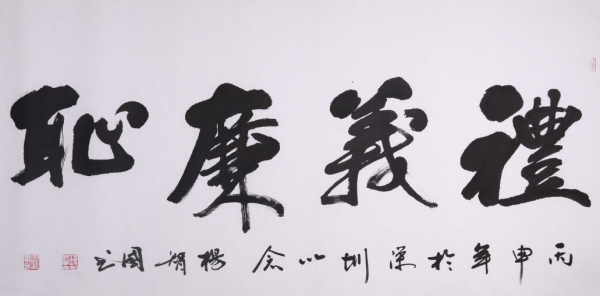 禮義廉恥
丙申年於深圳以念楊國書